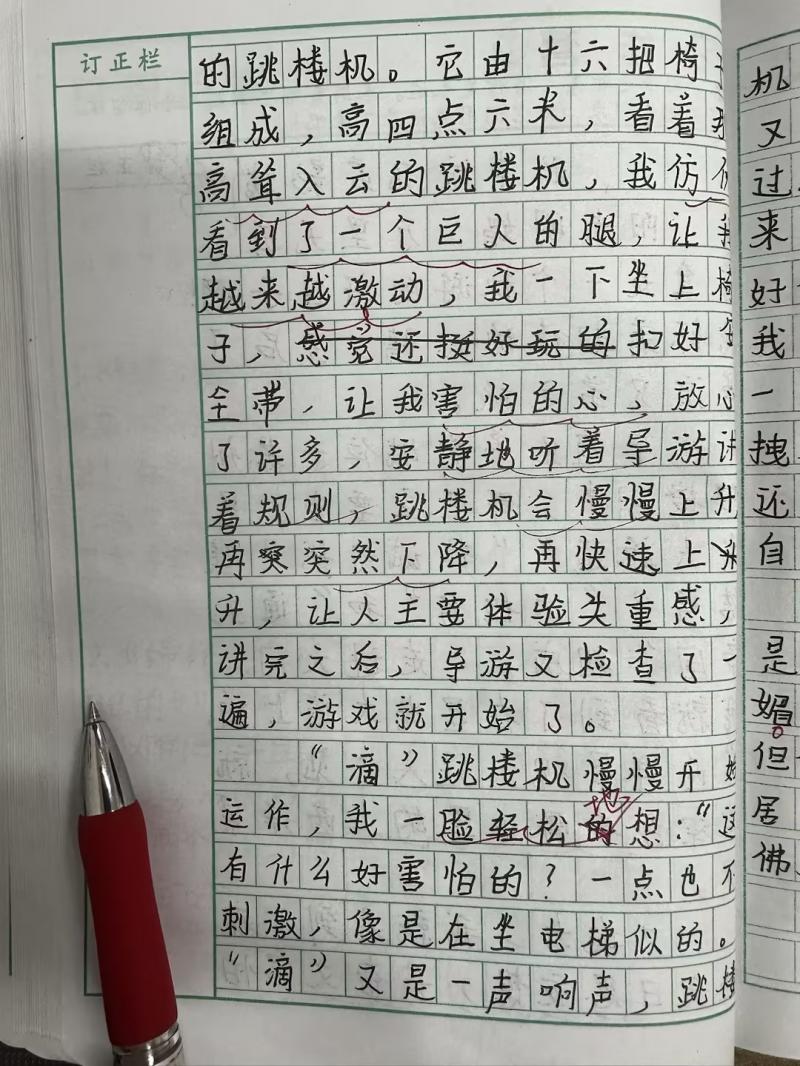 订正栏
的跳楼机。它由十六把椅子
组成，高四点六米，看着
高耸入云的跳楼机，我仿佛
看到了一个巨人的腿，让我
越来越激动，我一下坐上椅
子，感觉还挺好玩的扣好安
全带，让我害怕的心，放心
了许多，安静地听着导游讲
着规则，跳楼机会慢慢上升
再突突然下降，再快速上升
升，让人主要体验失重感，
讲完之后，导游又检查了一
遍，游戏就开始了。
“滴”跳楼机慢慢开始
运作，我一脸轻松的想：“这
地
有什么好害怕的？一点也不
刺激，像是在坐电梯似的。
“滴”又是一声响声，跳楼
机
又
过
来
好
我
一
拽
还
自
是
媚
但
居
佛